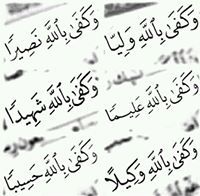 وَكَفَىٰ بِاللَّهِ وَلِيًّا
وَكَفَىٰ بِاللَّهِ نَصِيرًا
وَكَفَىٰ بِاللَّهِ عَلِيمًا
وَكَفَىٰ بِاللَّهِ شَهِيدًا
وَكَفَىٰ بِاللَّهِ وَكِيلًا
وَكَفَىٰ بِاللَّهِ حَسِيبًا